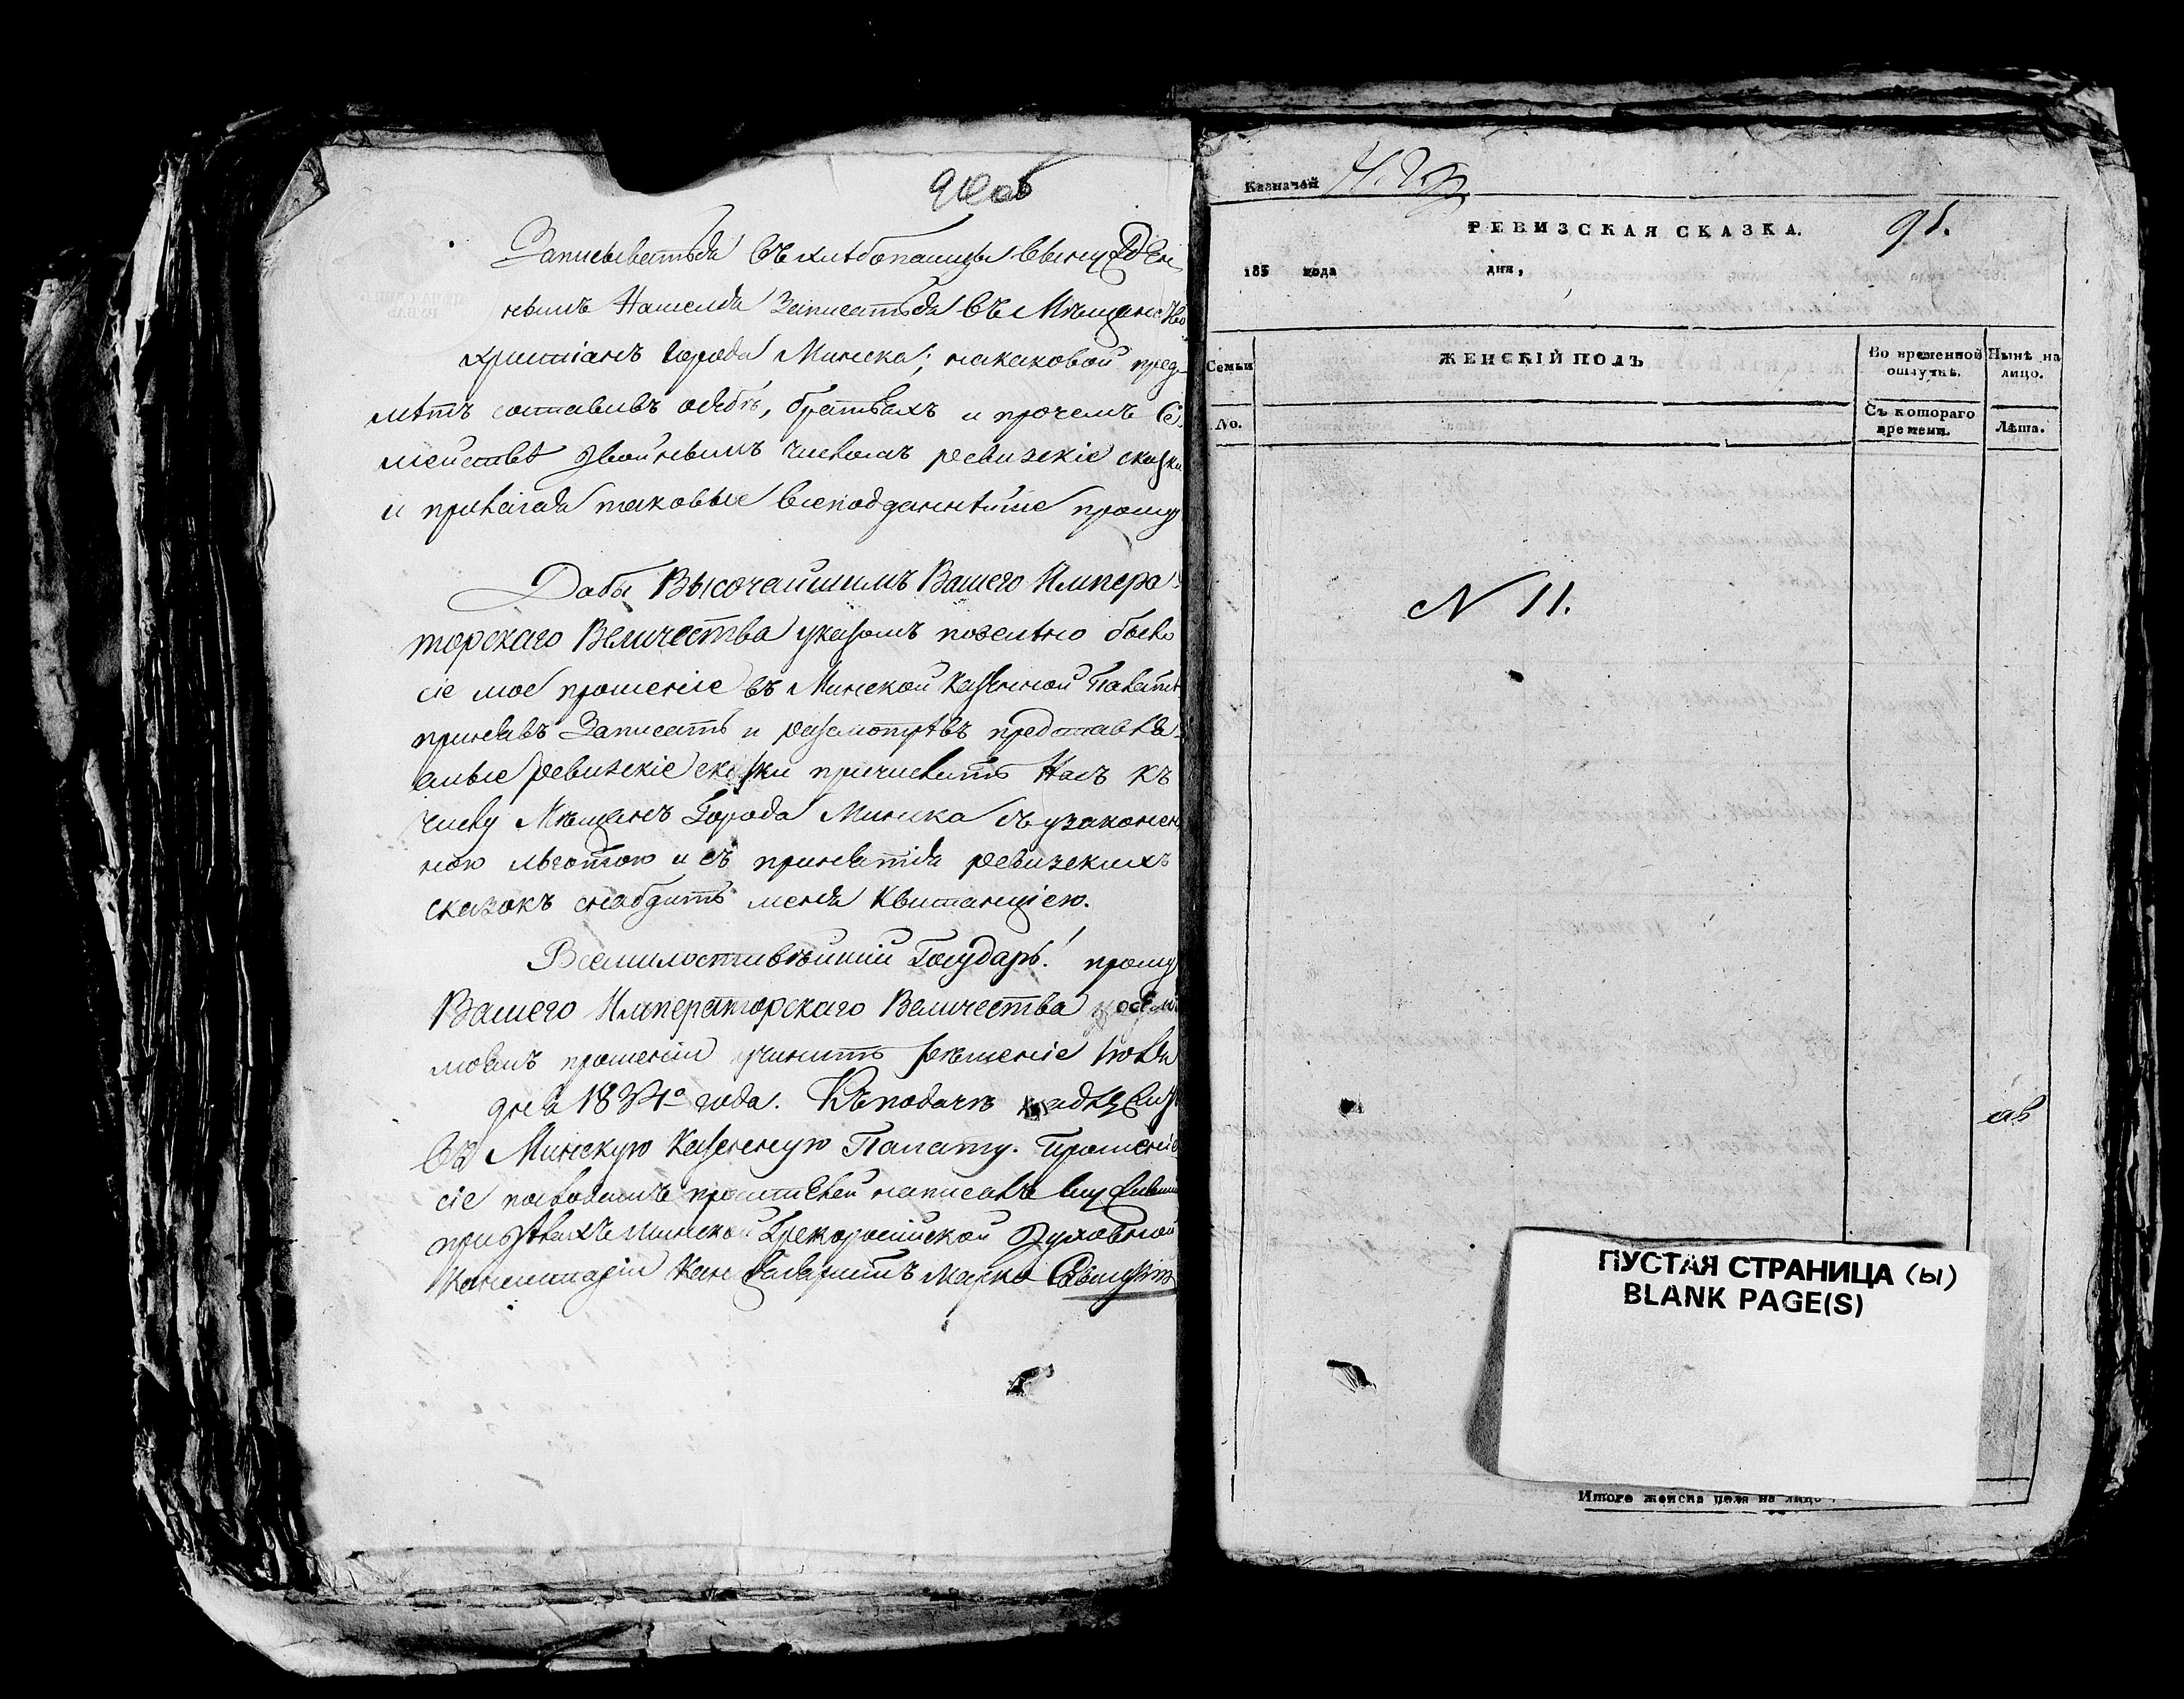 90об
Записываться въ хлѣбопашцы вынужден
нымъ нашелся записаться въ Мѣщане
христіанъ города Минска; накаковой пред
мѣтъ составивъ осебѣ, братьяхъ и прочемъ Се
мействѣ двойнымъ числомъ ревизскіе сказки
и прилагая таковые всеподданнѣйше прошу
Дабы Высочайшимъ Вашего Импера
торскаго Величества указомъ повелѣно было
сіе мое прошеніе въ Минской Казенной Палатѣ
принявъ Записать и разсмотрѣвъ представля
емые ревизскіе сказки причислить Насъ къ
числу Мѣщанъ Города Минска съ узаконен
ною льготою и въ принятіи ревизскихъ
сказокъ снабдить меня Квитанціею.
Всемилостивѣйшій Государь! прошу
Вашего Императорскаго Величества посем
моемъ прошеніи учинить рѣшеніе Іюля
дня 1834го года. Къ подачѣ надлежит
въ Минскую Казенную Палату. Прошеніе
сіе пословамъ просителей написалъ
при дѣлахъ Минской Грекоросійской Духовной
Консисторіи Канцеляристъ Марко
Казначей
РЕВИЗСКАЯ СКАЗКА.
91.
185 года дня,
Семьи
ЖЕНСКІЙ ПОЛЪ
Во временной отлучкѣ.
Нынѣ на лицо.
No.
Съ котораго времени.
Лѣта.
N 11.
ПУСТАЯ СТРАНИЦА (Ы)
BLANK PAGE(S)
Итого женска пола на лицо